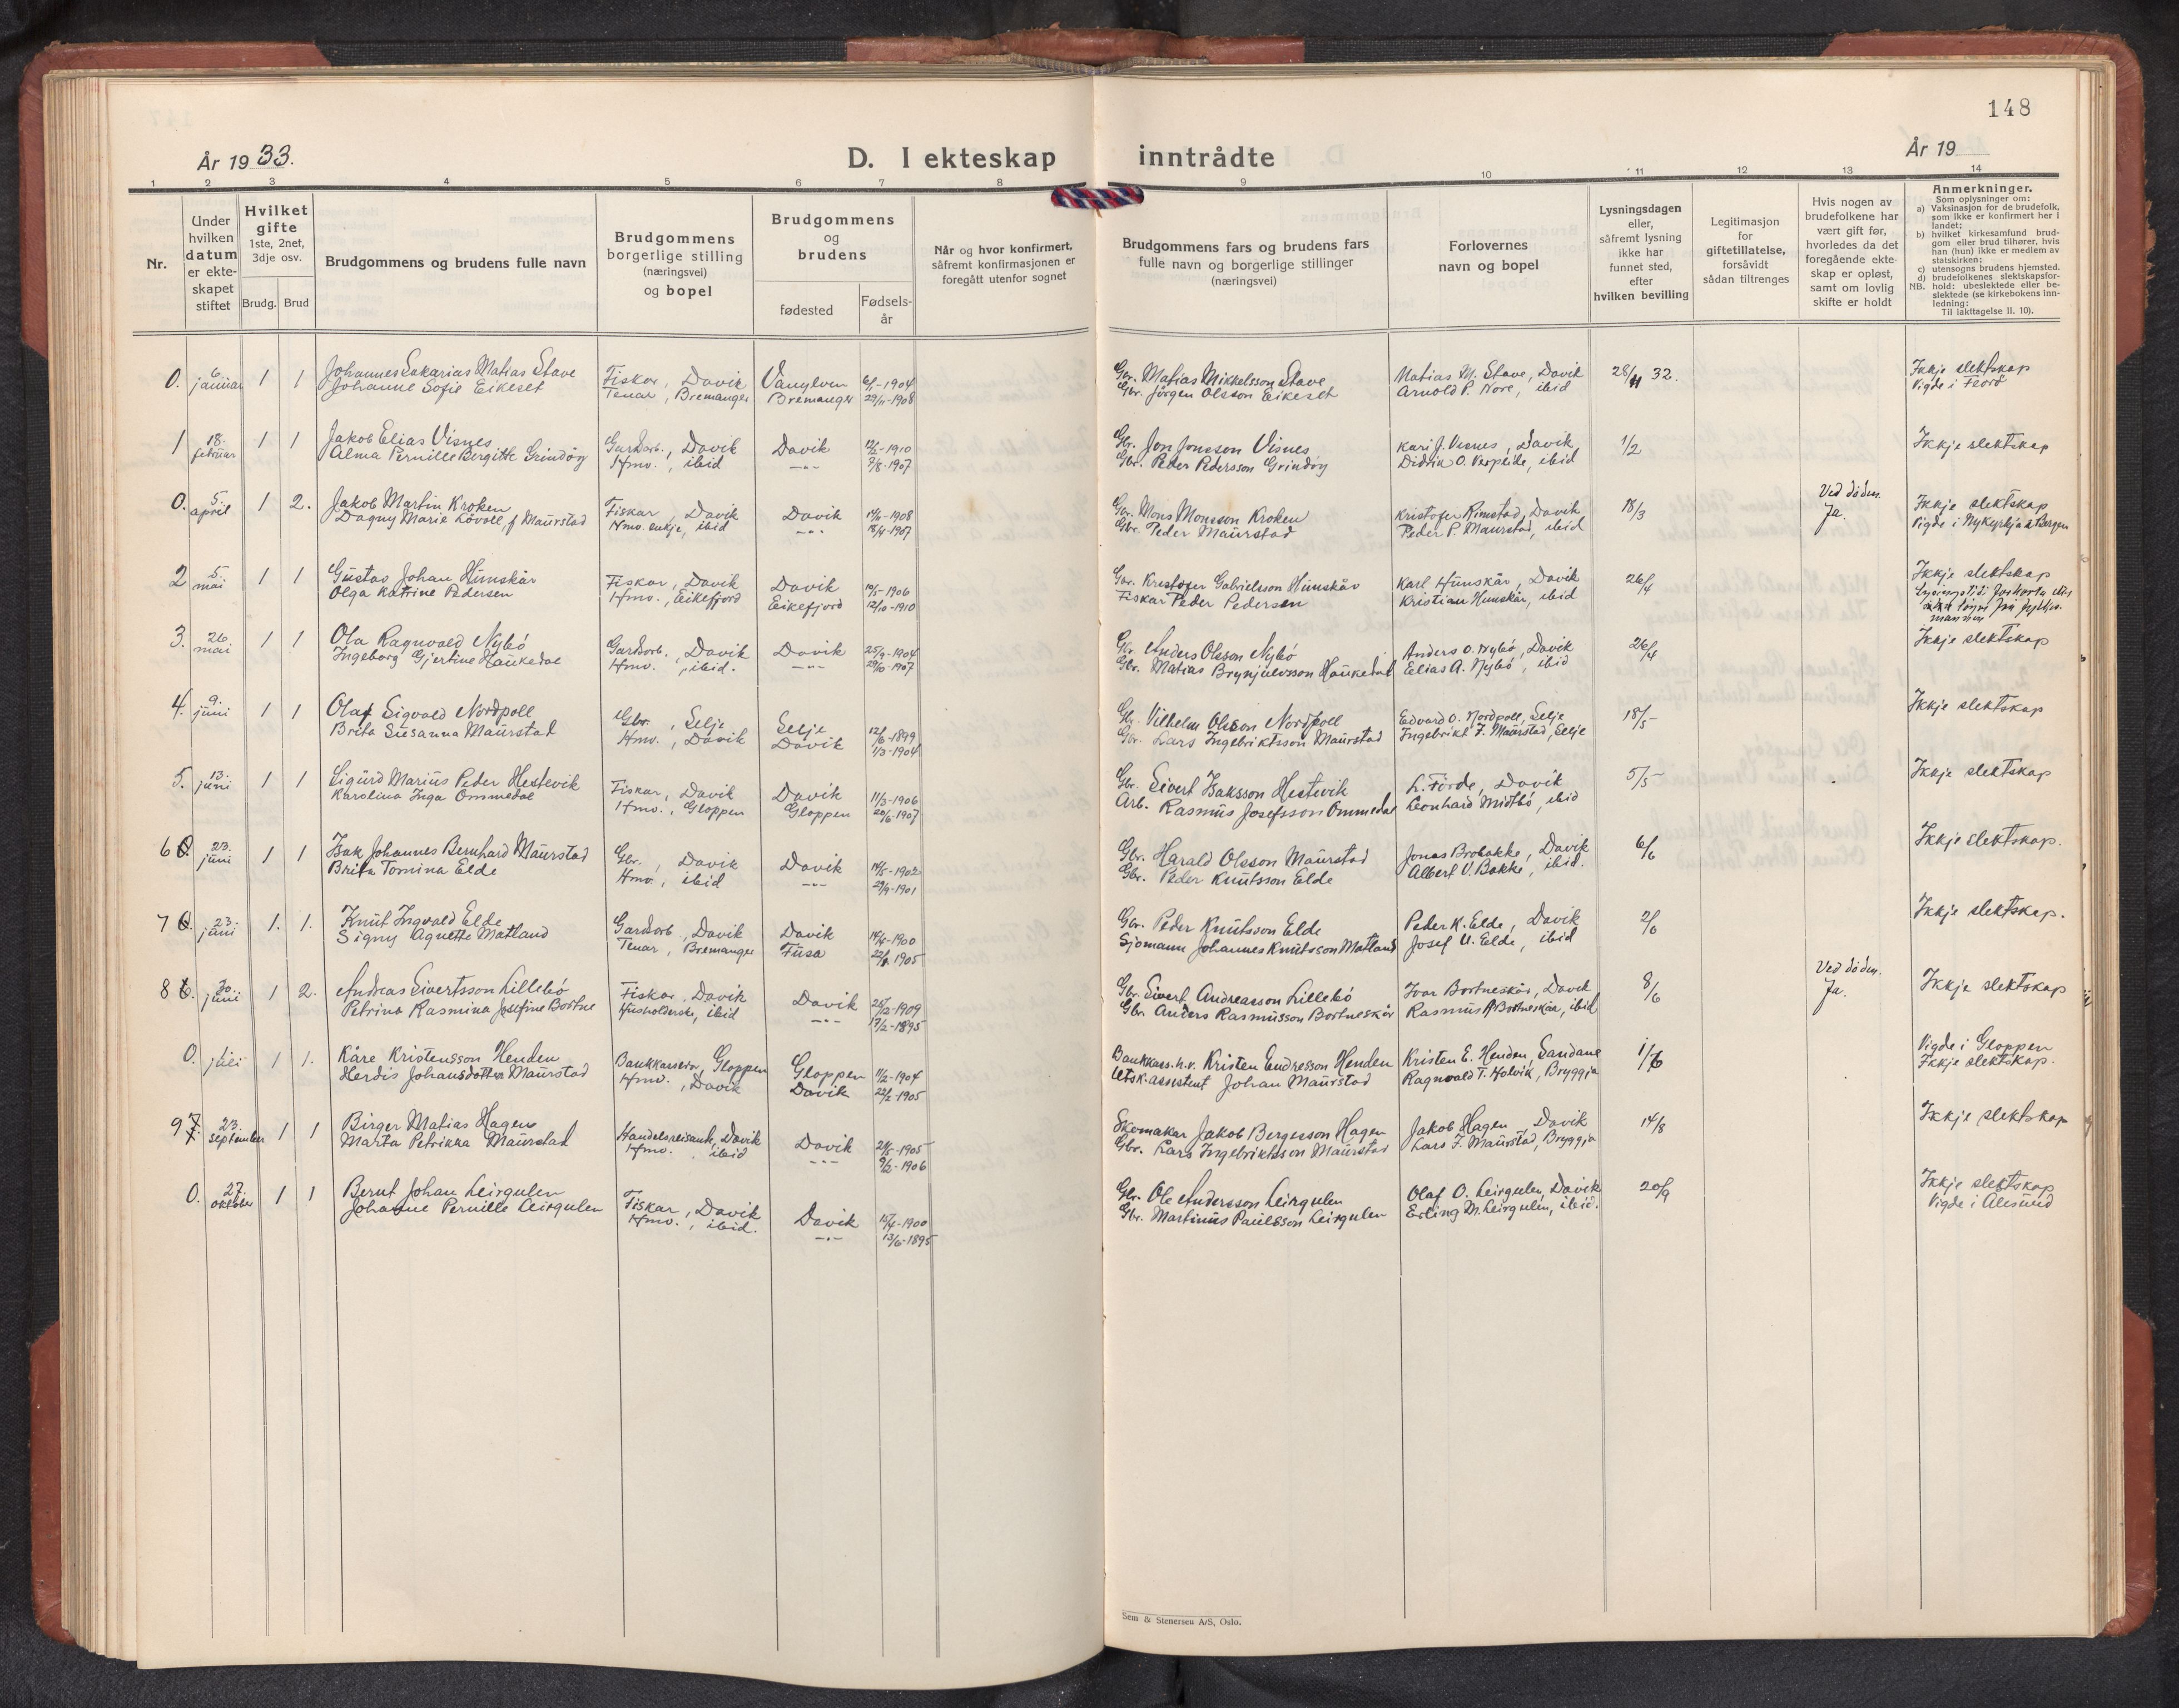 148
År 1933.
D. I ekteskap inntrådte
År 19
1 2 3 4 5 6 7 8 9 10 11 12 13 14
Nr.
Under hvilken datum er ekteskapet stiftet
Hvilket gifte 1ste, 2net, 3dje osv.
Brudg. Brud
Brudgommens og brudens fulle navn
Brudgommens borgerlige stilling (næringsvei) og bopel
Brudgommens og brudens
fødested
Fødselsår
Når og hvor konfirmert, såfremt konfirmasjonen er foregått utenfor sognet
Brudgommens fars og brudens fars fulle navn og borgerlige stillinger (næringsvei)
Forlovernes navn og bopel
Lysningsdagen eller, såfremt lysning ikke har funnet sted, efter hvilken bevilling
Legitimasjon for giftetillatelse, forsåvidt sådan tiltrenges
Hvis nogen av brudefolkene har vært gift før, hvorledes da det foregående ekteskap er opløst, samt om lovlig skifte er holdt
Anmerkninger.
Som oplysninger om:
a) Vaksinasjon for de brudefolk, som ikke er konfirmert her i landet;
b) hvilket kirkesamfund brudgom eller brud tilhører, hvis han (hun) ikke er medlem av statskirken;
c) utensogns brudens hjemsted.
d) brudefolkenes slektskapsforhold: ubeslektede eller beslektede (se kirkebokens innledning:
NB.
Til iakttagelse II. 10).
0. 6. januar 1 1 Johannes Sakarias Matias Stave Fiskar, Davik Vanylven 6/1-1904 Gbr. Matias Mikkelsson Stave Matias M. Stave, Davik 28/11 32. Ikkje slektskap
Johanne Sofie Eikeset Tenar, Bremanger Bremanger 29/11-1908 Gbr. Jörgen Olsson Eikeset Arnold P. Nore, ibid Vigde i
1 18. februar 1 1 Jakob Elias Visnes Gardarb., Davik Davik 12/2-1910 Gbr. Jon Jonsson Visnes Kari J. Visnes, Davik 1/2 Ikkje slektskap
Alma Pernille Bergitte Grindöy Hmo., ibid -"- 7/8-1907 Gbr. Peder Pedersson Grindöy Didrik O. Verpeide, ibid
0. 5. april 1 2. Jakob Martin Kroken Fiskar, Davik Davik 14/11-1908 Gbr. Mons Monsson Kroken Kristofer Rimstad, Davik 18/3 Ved döden. Ja. Ikkje slektskap
Dagny Marie Lövoll f. Maurstad Hmo. enkje, ibid -"- 18/4-1907 Gbr. Peder Maurstad Peder P. Maurstad, ibid Vigde i Nykyrkja i Bergen
2 5. mai 1 1 Gustav Johan Hunskår Fiskar, Davik Davik 10/5-1906 Gbr. Kristofer Gabrielsson Hunskår Karl Hunskår, Davik 26/4 Ikkje slektskap
Olga Katrine Pedersen Hmo., Eikefjord Eikefjord 12/10-1910 Fiskar Peder Pedersen Kristian Hunskår, ibid
3. 26. mai 1 1 Ola Ragnvald Nybö Gardarb., Davik Davik 25/9-1904 Gbr. Anders Olsson Nybö Anders O. Nybö, Davik 26/4 Ikkje slektskap
Ingeborg Gjertine Haukedal Hmo., ibid. -"- 29/6-1907 Gbr. Matias Brynjulvsson Haukedal Elias A. Nybö, ibid
4. 9. juni 1 1 Olaf Sigvald Nordpoll Gbr., Selje Selje 12/6-1899 Gbr. Vilhelm Olsson Nordpoll Edvard O. Nordpoll, Selje 18/5 Ikkje slektskap
Brita Susanna Maurstad Hmo., Davik Davik 1/3-1904 Gbr. Lars Ingebriktsson Maurstad Ingebrikt J. Maurstad, Selje
5. 13. juni 1 1 Sigurd Marius Peder Hestevik Fiskar, Davik Davik 11/3-1906 Gbr. Sivert Isaksson Hestevik L. Förde, Davik 5/5 Ikkje slektskap
Karolina Inga Ommedal Hmo., Gloppen Gloppen 20/6-1907 Arb. Rasmus Josefsson Ommedal Leonhard Midtbö, ibid
6 23. juni 1 1 Isak Johannes Bernhard Maurstad Gbr., Davik Davik 14/5-1902 Gbr. Harald Olsson Maurstad Jonas Brobakke, Davik 6/6 Ikkje slektskap.
Brita Tomina Elde Hmo., ibid -"- 29/9-1901 Gbr. Peder Knutsson Elde Albert V. Bakke, ibid.
7 23. juni 1. 1. Knut Ingvald Elde Gardarb, Davik Davik 14/4-1900 Gbr. Peder Knutsson Elde Peder K. Elde, Davik 2/6 Ikkje slektskap.
Signy Agnette Matland Tenar, Bremanger Fusa 22/8 1905 Sjömann Johannes Knutsson Matland Josef U. Elde, ibid
8 30. juni 1 2. Andreas Sivertsson Lillebö Fiskar, Davik Davik 25/2-1909 Gbr. Sivert Andreasson Lillebö Ivar Bortneskår, Davik 8/6 Ved döden. Ja. Ikkje slektskap
Petrina Rasmina Josefine Bortne Husholderske, ibid -"- 17/2-1895 Gbr. Anders Rasmusson Bortneskår Rasmus A Bortneskår, ibid
0. juli 1 1. Kåre Kristensson Henden Bankkasserar, Gloppen Gloppen 11/2-1904 Bankkass. h.v. Kristen Endresson Henden Kristen E. Henden, Sandane 1/6 Vigde i Gloppen
Herdis Johansdotter Maurstad Hmo., Davik Davik 22/2-1905 Utsk.assistent Johan Maurstad Ragnvald T. Holvik, Bryggja Ikkje slektskap.
9 23. september 1 1 Birger Matias Hagen Handelsreisande, Davik Davik 21/5-1905 Skomakar Jakob Bergesson Hagen Jakob Hagen, Davik 14/8 Ikkje slektskap
Marta Petrikka Maurstad Hmo., ibid -"- 9/2-1906 Gbr. Lars Ingebriktsson Maurstad Lars J. Maurstad, Bryggja
0. 27. oktober 1 1 Bernt Johan Leirgulen Fiskar, Davik Davik 15/4-1900 Gbr. Ole Andersson Leirgulen Olaf O. Leirgulen, Davik 20/9 Ikkje slektskap
Johanne Pernille Leirgulen Hmo., ibid. -"- 13/6-1895 Gbr. Martinus Paulsson Leirgulen Erling M. Leirgulen, ibid. Vigde i Ålesund
Sem & Stenersen A/S, Oslo.